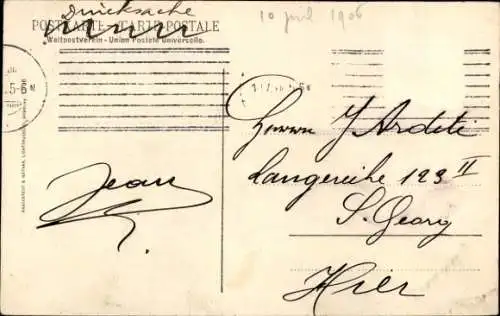 Drucksache
10 juil 1906
POSTKARTE - CARTE POSTALE
Weltpostverein - Union Postale Universelle.
5-6 N
Herrn J Ardeti
Langereihe 123 II
S. Georg
Hier
Jean